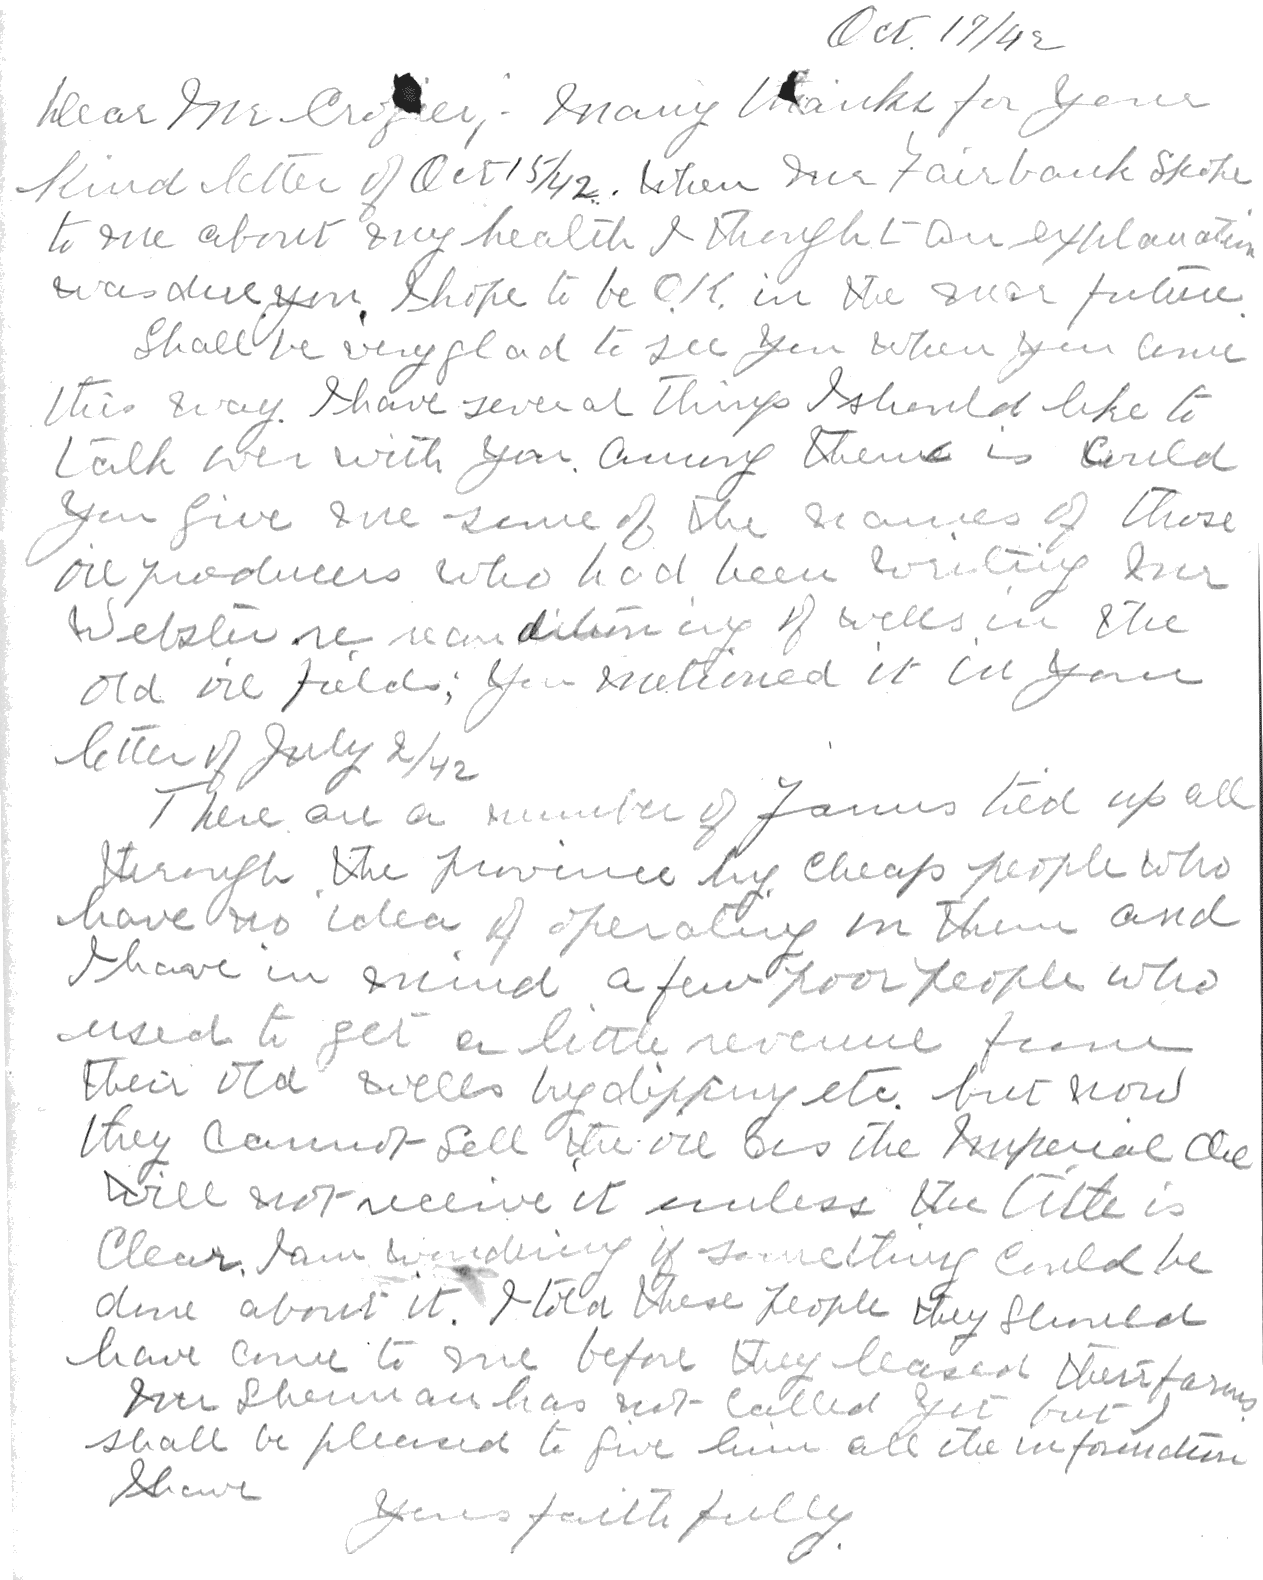 Oct. 17/42
Dear Mr. Crozier;- Many thanks for your
kind letter of Oct 15/42. When Mr Fairbank spoke
to me about my health I thought an explanation
was due you. I hope to be O.K. in the near future.
Shall be very glad to see you when you come
this way. I have several things I should like to
talk over with you. Among them is could
you give me some of the names of those
oil producers who had been writing Mr
Webster re reconditioning of wells in the
old oil fields; you metioned it in your
letter of July 2/42
There are a number of farms tied up all
through the province by cheap people who
have no idea of operating on them and
I have in mind a few poor people who
used to get a little revenue from
their old wells by dipping etc. but now
they cannot sell the oil as the Imperial Oil
will not receive it unless the title is
clear. I am wondering if something could be
done about it. I told these people they should
have come to me before they leased their farms.
Mr Sherman has not called yet but I
shall be pleased to give him all the information
I have
Yours faithfully.